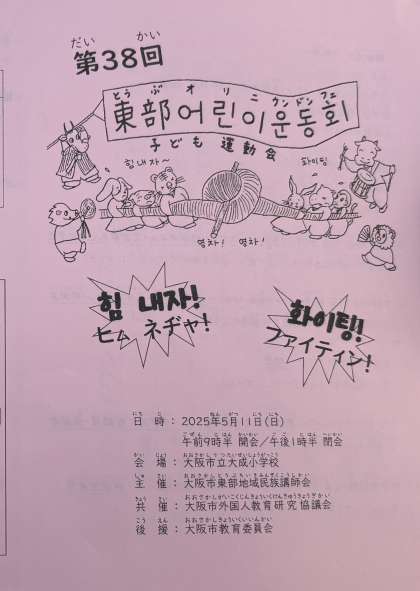 第38回
だい かい
東部어린이운동회
とうぶオリニウンドンフェ
子ども 運動会
힘내자~
화이팅
영차! 영차!
힘 내자!
ヒム ネヂャ!
화이팅!!
ファイティン!
日 時 : 2025年5月11日(日)
午前9時半 開会/午後1時半 閉会
会 場 : 大阪市立大成小学校
主 催 : 大阪市東部地域民族講師会
共 催 : 大阪市外国人教育研究協議会
後 援 : 大阪市教育委員会